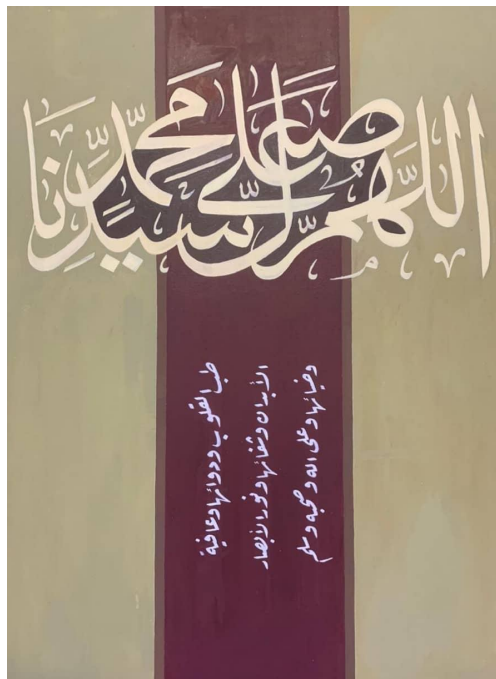 اللهم صل على سيدنا محمد
طب القلوب ودوائها وعافية
الأبدان وشفائها ونور الأبصار
وضيائها وعلى اله وصحبه وسلم